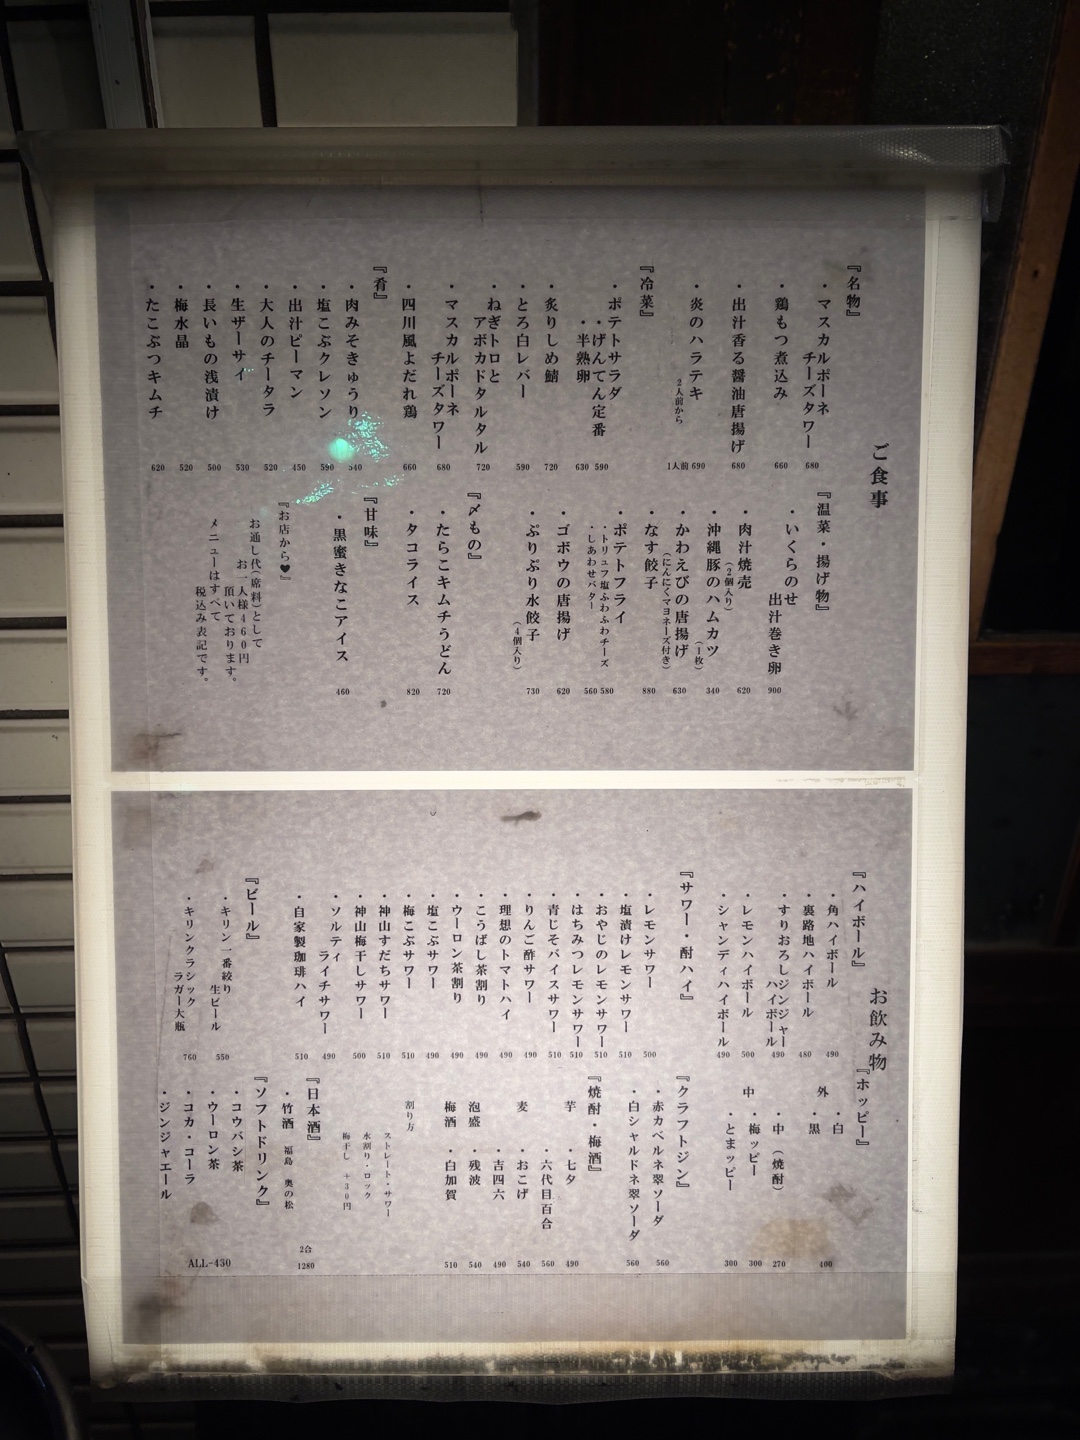 ご食事
『名物』
・マスカルポーネ
チーズタワー 680
・鶏もつ煮込み 660
・出汁香る醤油唐揚げ 680
・炎のハラテキ
2人前から
1人前 690
『冷菜』
・ポテトサラダ
・げんてん定番 590
・半熟卵 630
・炙りしめ鯖 720
・とろ白レバー 590
・ねぎトロと
アボカドタルタル 720
・マスカルポーネ
チーズタワー 680
・四川風よだれ鶏 660
『肴』
・肉みそきゅうり 540
・塩こぶクレソン 590
・出汁ピーマン 450
・大人のチータラ 520
・生ザーサイ 530
・長いもの浅漬け 500
・梅水晶 520
・たこぶつキムチ 620
『温菜・揚げ物』
・いくらのせ
出汁巻き卵 900
・肉汁焼売
(2個入り) 620
・沖縄豚のハムカツ
(1枚) 340
・かわえびの唐揚げ
(にんにくマヨネーズ付き) 630
・なす餃子 880
・ポテトフライ
・トリュフ塩ふわふわチーズ 580
・しあわせバター 560
・ゴボウの唐揚げ 620
・ぷりぷり水餃子
(4個入り) 730
『〆もの』
・たらこキムチうどん 720
・タコライス 820
『甘味』
・黒蜜きなこアイス 460
『お店から♥』
お通し代(席料)として
お一人様460円
頂いております。
メニューはすべて
税込み表記です。
お飲み物
『ハイボール』
・角ハイボール 490
・裏路地ハイボール 480
・すりおろしジンジャー
ハイボール 490
・レモンハイボール 500
・シャンディハイボール 490
『サワー・酎ハイ』
・レモンサワー 500
・塩漬けレモンサワー 510
・おやじのレモンサワー 510
・はちみつレモンサワー 510
・青じそバイスサワー 510
・りんご酢サワー 490
・理想のトマトハイ 490
・こうばし茶割り 490
・ウーロン茶割り 490
・塩こぶサワー 490
・梅こぶサワー 510
・神山すだちサワー 510
・神山梅干しサワー 500
・ソルティ
ライチサワー 490
・自家製珈琲ハイ 510
『ビール』
・キリン一番絞り
生ビール 550
・キリンクラシック
ラガー大瓶 760
『ホッピー』
外
・白
・黒 400
中
・中(焼酎) 270
・梅ッピー 300
・とまッピー 300
『クラフトジン』
・赤カベルネ翠ソーダ 560
・白シャルドネ翠ソーダ 560
『焼酎・梅酒』
芋 ・七夕 490
・六代目百合 560
麦 ・おこげ 540
・吉四六 490
泡盛 ・残波 540
梅酒 ・白加賀 510
割り方
ストレート・サワー
水割り・ロック
梅干し +30円
『日本酒』
・竹酒 福島 奥の松
2合
1280
『ソフトドリンク』
・コウバシ茶
・ウーロン茶
・コカ・コーラ
・ジンジャエール
ALL-430